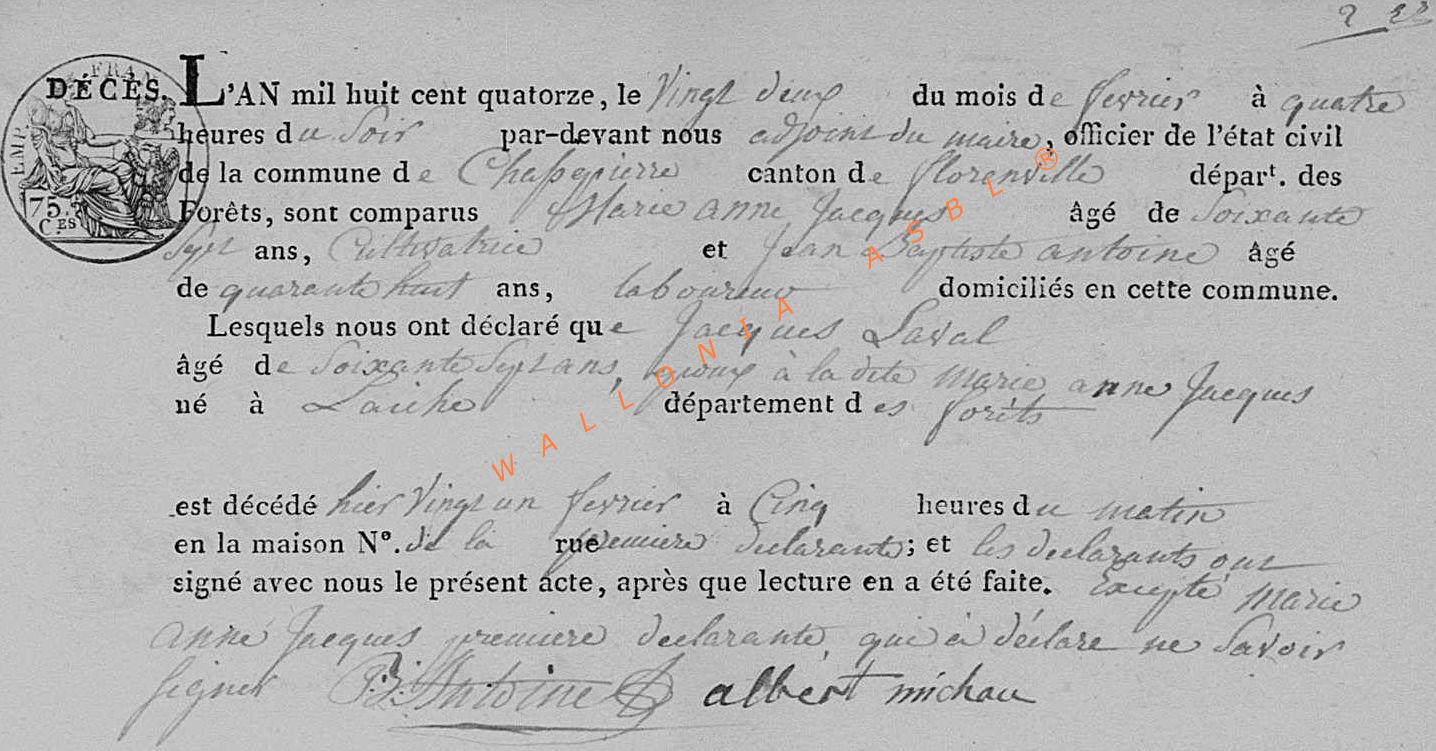 2 22
DÉCÈS. L'AN mil huit cent quatorze, le Vingt deux du mois de fevrier à quatre
heures du Soir par-devant nous adjoint du maire, officier de l'état civil
de la commune de Chassepierre canton de florenville dépar^t. des
Forêts, sont comparus Marie anne Jacques âgé de Soixante
Sept ans, Cultivatrice et Jean Baptiste antoine âgé
de quarante huit ans, laboureur domiciliés en cette commune.
Lesquels nous ont déclaré que Jacques Laval
âgé de Soixante Sept ans, à la dite marie anne Jacques
né à Laiche département des forêts
est décédé hier Vingt un fevrier à Cinq heures du matin
en la maison N°. de la rue premiere declarante; et les declarants ont
signé avec nous le présent acte, après que lecture en a été faite. Excepté marie
anne Jacques premiere declarante, qui a déclaré ne Savoir
signer B: Antoine albert michau
FRAN
EMP.
75.
C.ES
WALLONIA ASBL ®